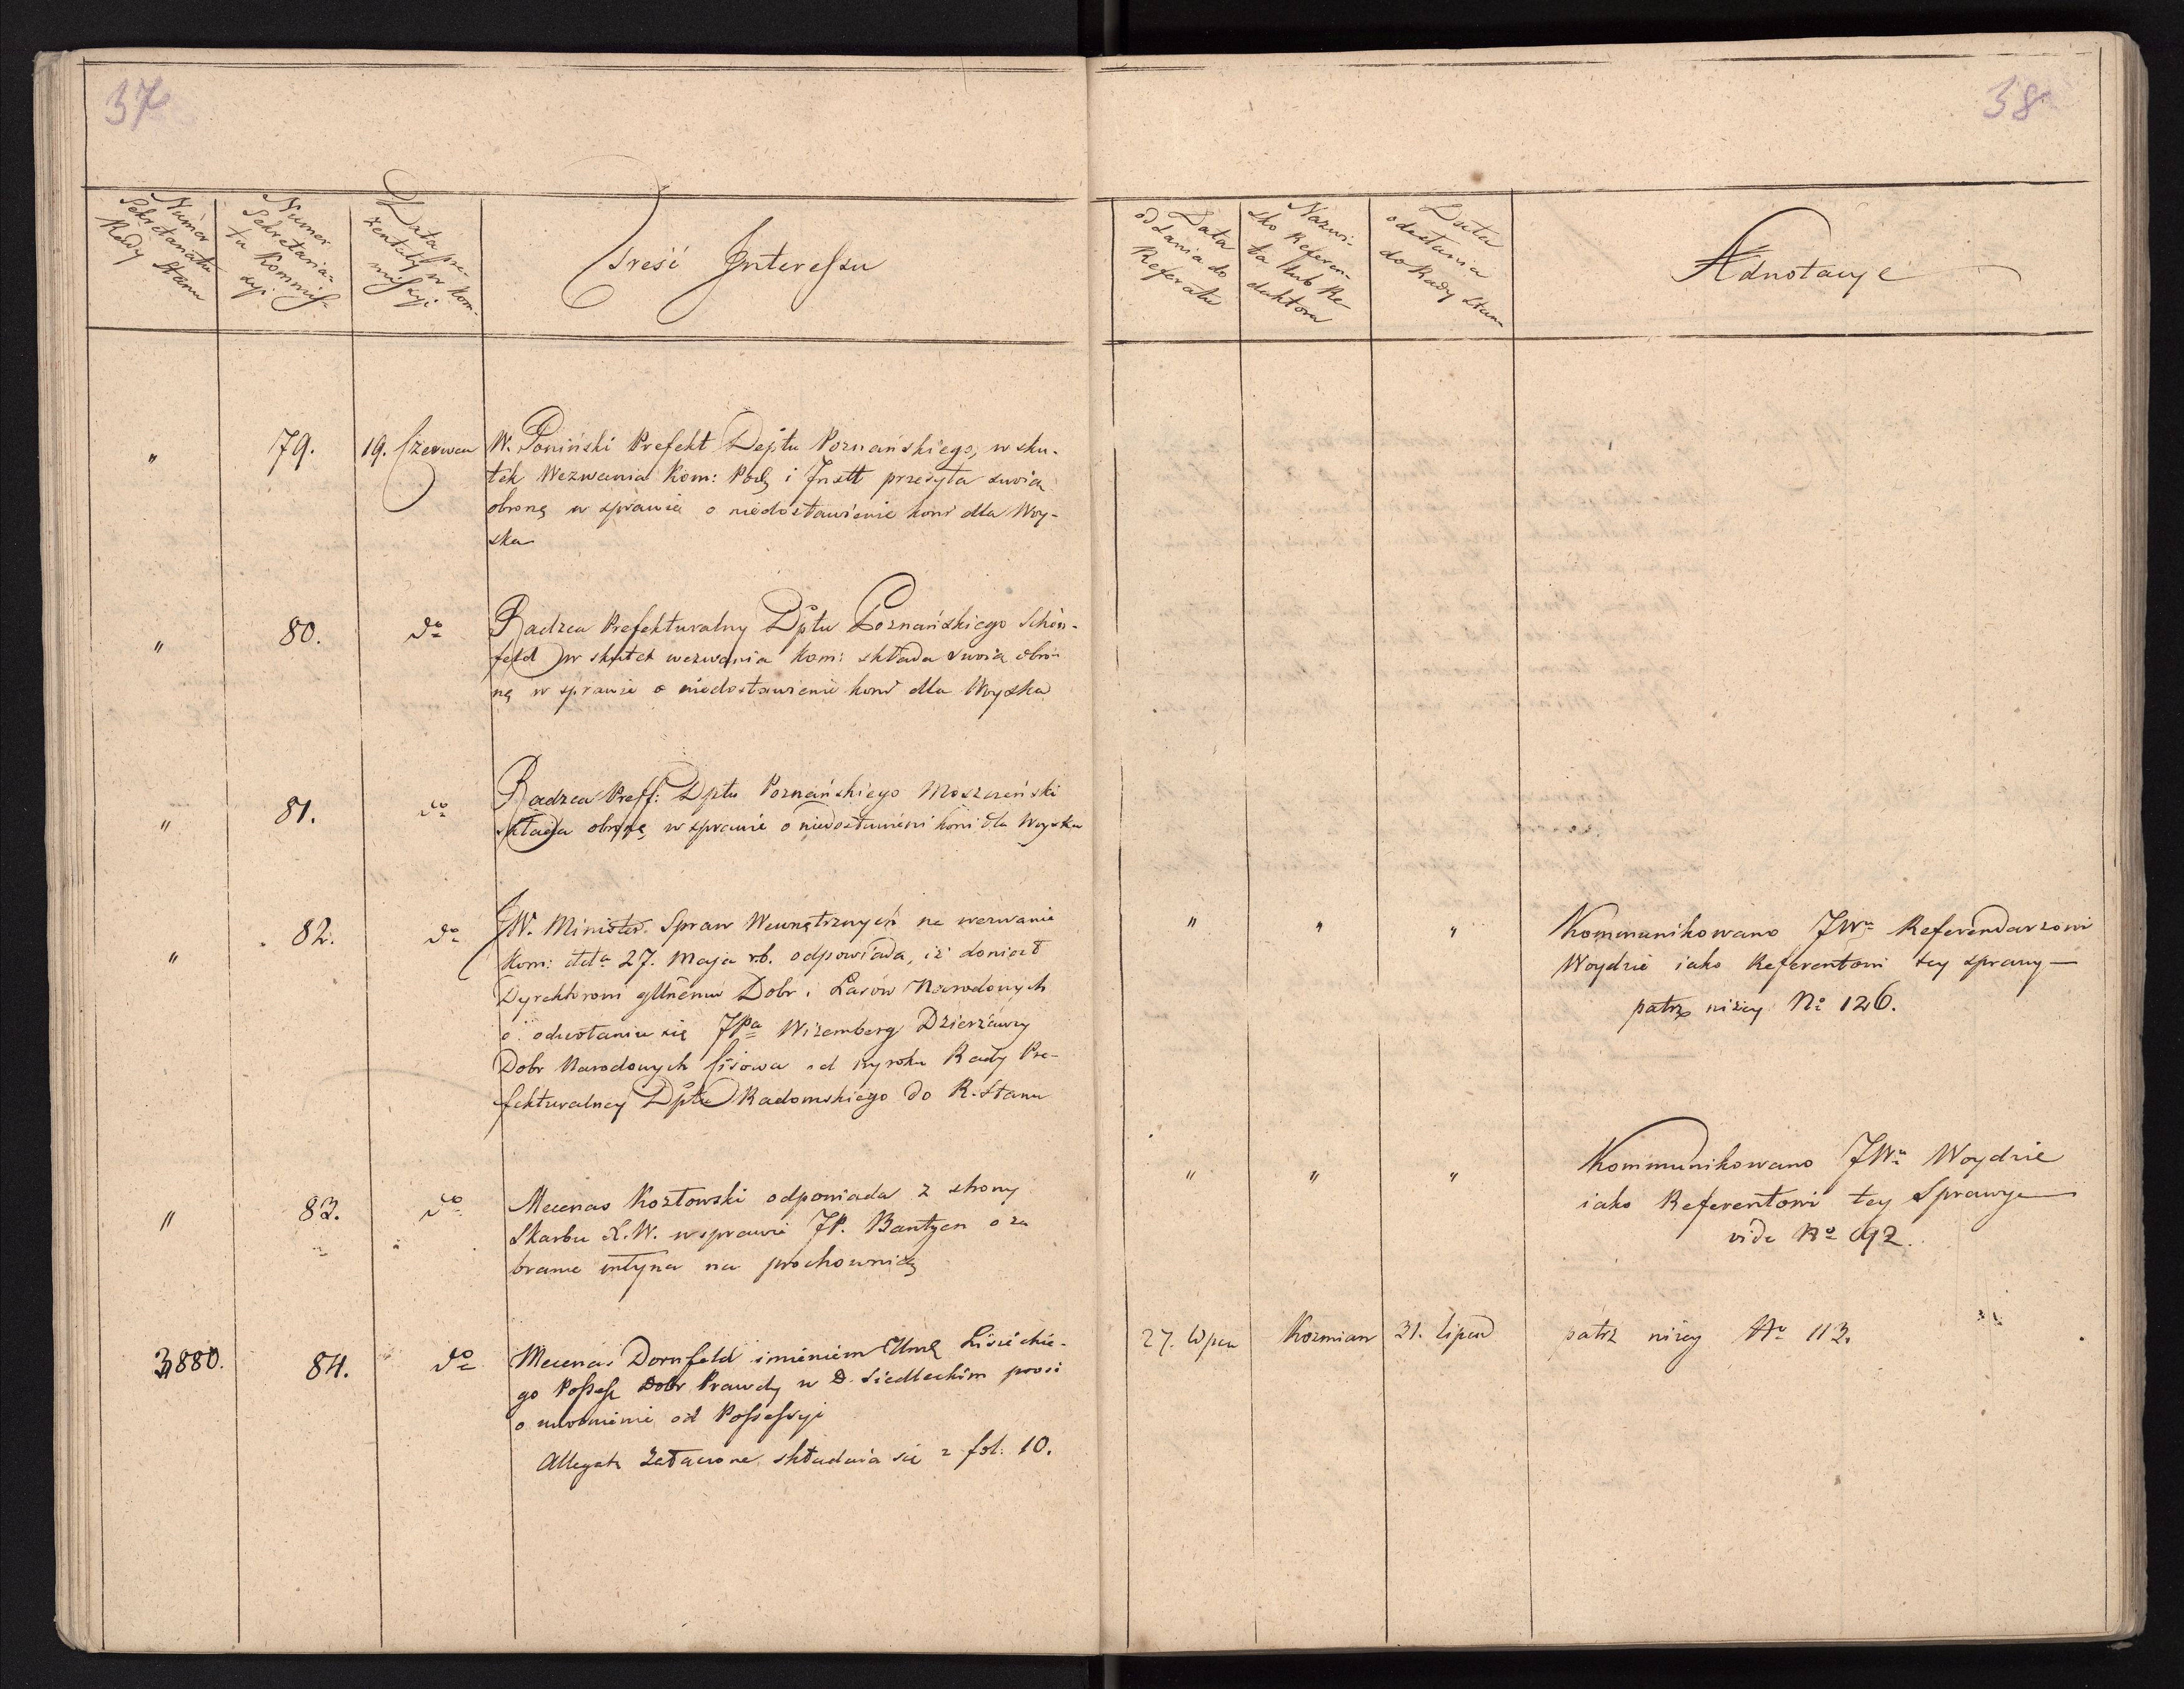 37
38
Numer Sekretariatu Rady Stanu
Numer Sekretaria-
tu Kommis-
syi
Data pre-
zentaty w Kom-
missyi
Treść Interessu
Data
oddania do
Referatu
Nazwi-
sko Referen-
ta lub Re-
daktora
Data
odesłania
do Rady Stanu
Adnotacye
" 79. 19. Czerwca W. Poniński Prefekt Deptu Poznańskiego, w sku-
tek Wezwania Kom: Podż i Instt przesyła swoią
obronę w sprawie o niedostawienie koni dla Woy-
ska
" 80. do Radzca Prefekturalny Dptu Poznańskiego Schön-
feld w skutek wezwania Kom: składa swoią obro-
nę w sprawie o niedostawienie koni dla Woyska
" 81. do Radzca Preff: Dptu Poznańskiego Moszczeński
składa obronę w sprawie o niedostawieni koni dla Woyska
" 82. do JW. Minister Spraw Wewnętrznych na wezwanie
Kom: dda 27. Maja r.b. odpowiada, iż doniosł
Dyrektorowi gllnemu Dobr i Lasów Narodowych
o odwołaniu się JPa Wizemberg Dzierzawcy
Dobr Narodowych Cisowa od wyroku Rady Pre-
fekturalney Dptu Radomskiego do R. Stanu
" " " Kommunikowano JWu Referendarzowi
Woydzie iako Referentowi tey sprawy —
patrz niżey No 126.
" 83. do Mecenas Kozłowski odpowiada z strony
Skarbu X.W. w sprawie JP. Bantzen o za
branie młyna na prochownią
" " " Kommunikowano JWu Woydzie
iako Referentowi tey Sprawy —
vide No 92.
3880. 84. do Mecenas Dornfeld imieniem Ur Lisieckie-
go Possess Dobr Prawdy w D. Siedleckim prosi
o uwolnienie od Possessyi
Allegata załączone składaią się z fol: 10.
27. Lipca Kozmian 31. Lipca patrz niżey No 113.